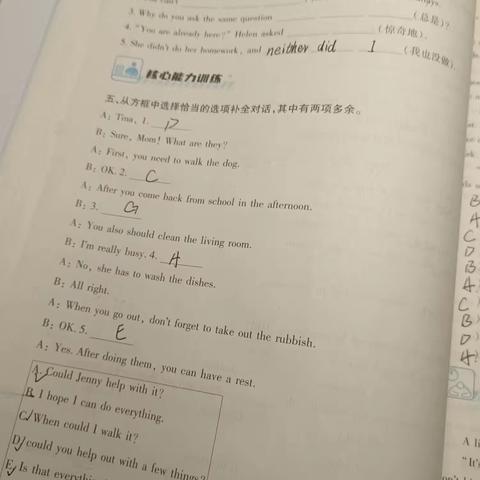 3. Why do you ask the same question (总是)?
4. "You are already here?" Helen asked (惊奇地).
5. She didn't do her homework, and neither did I (我也没做).
核心能力训练
五、从方框中选择恰当的选项补全对话,其中有两项多余。
A: Tina, 1. D
B: Sure, Mom! What are they?
A: First, you need to walk the dog.
B: OK. 2. C
A: After you come back from school in the afternoon.
B: 3. G
A: You also should clean the living room.
B: I'm really busy. 4. A
A: No, she has to wash the dishes.
B: All right.
A: When you go out, don't forget to take out the rubbish.
B: OK. 5. E
A: Yes. After doing them, you can have a rest.
A. Could Jenny help with it?
B. I hope I can do everything.
C. When could I walk it?
D. could you help out with a few things?
E. Is that
B
A
C
D
B
A
C
B
D
A
A li
"It's